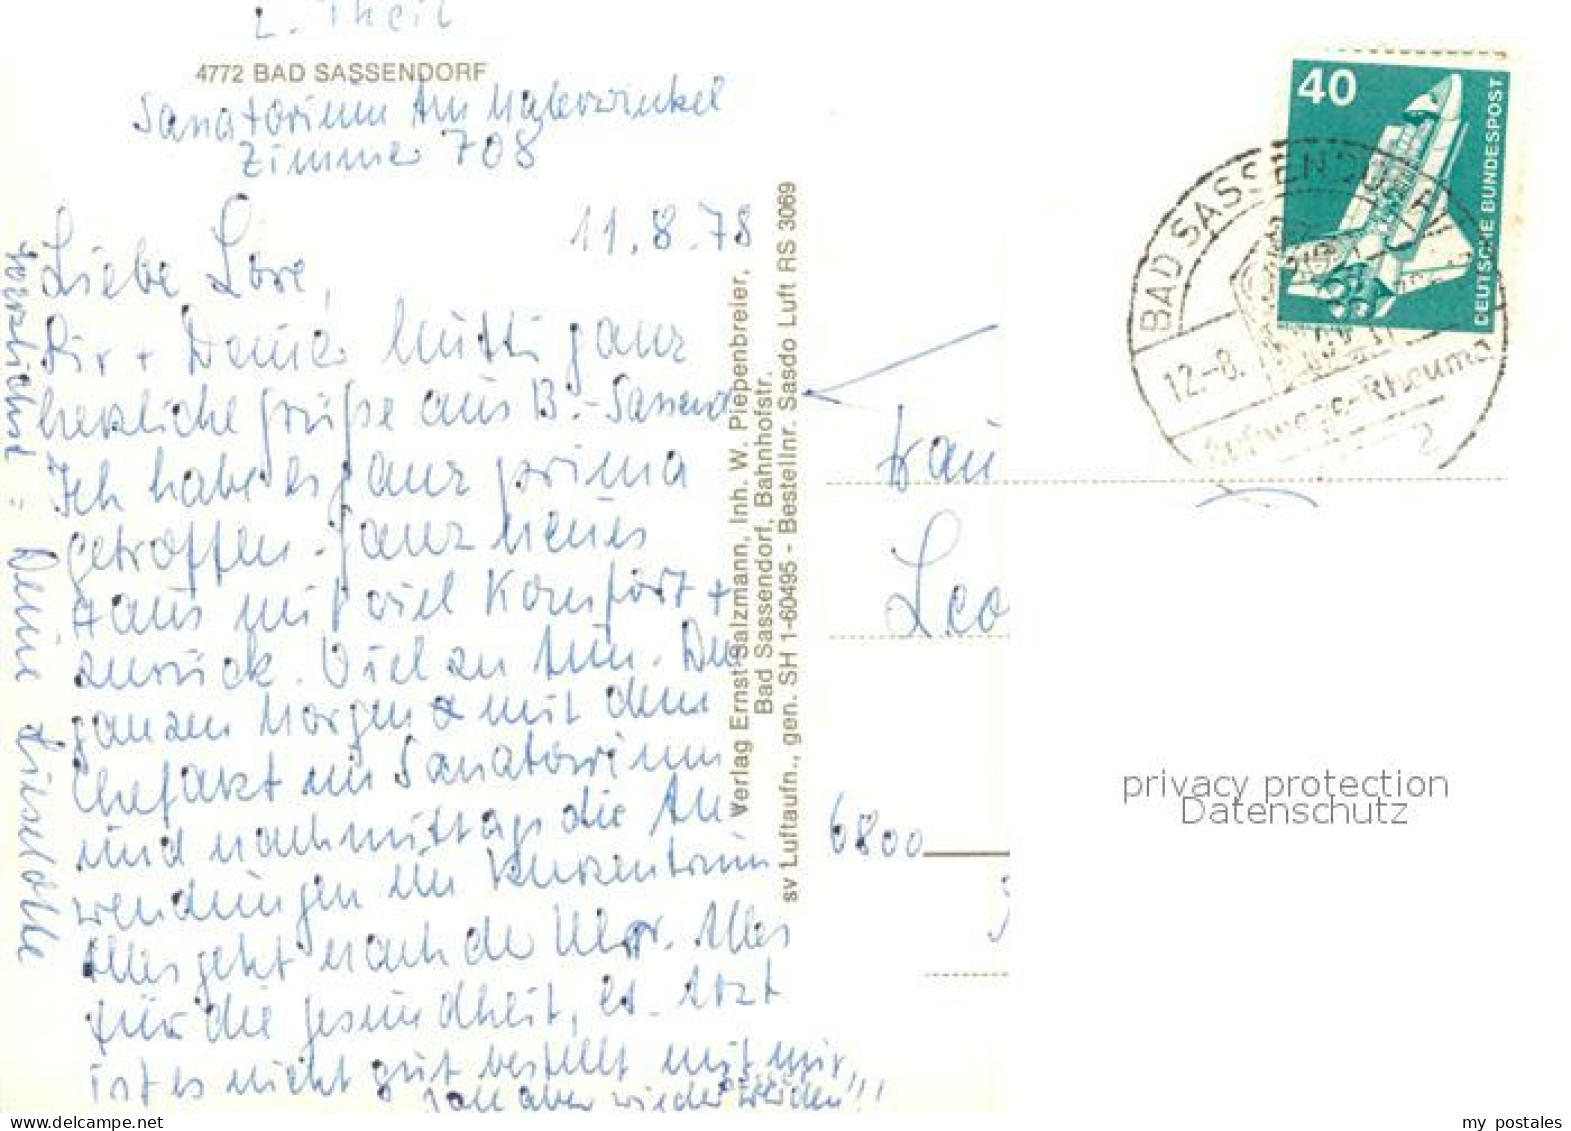 L. Theil
4772 BAD SASSENDORF
Sanatorium Am Malerwinkel
Zimmer 708
11.8.78
Liebe Lore,
Dir + Deine Mutti ganz
herzliche Grüße aus B.-Sassend
Ich habe es ganz prima
getroffen. Ganz neues
Haus mit viel Komfort +
zurück. Viel zu tun. Den
ganzen Morgen mit dem
Chefarzt im Sanatorium
und nachmittags die An-
wendungen im Kurzentrum
Alles geht nach der Uhr. Alles
für die Gesundheit, lt. Arzt
ist es nicht gut bestellt mit mir,
soll aber wieder werden!!!
herzlichst = Deine Lieselotte
Verlag Ernst Salzmann, Inh. W. Piepenbreier,
Bad Sassendorf, Bahnhofstr.
sv Luftaufn., gen. SH 1-60495 - Bestellnr. Sasdo Luft RS 3069
40
DEUTSCHE BUNDESPOST
BAD SASSENDORF
12.-8.
Rheuma
2
Frau
Leo
6800
privacy protection
Datenschutz
my postales